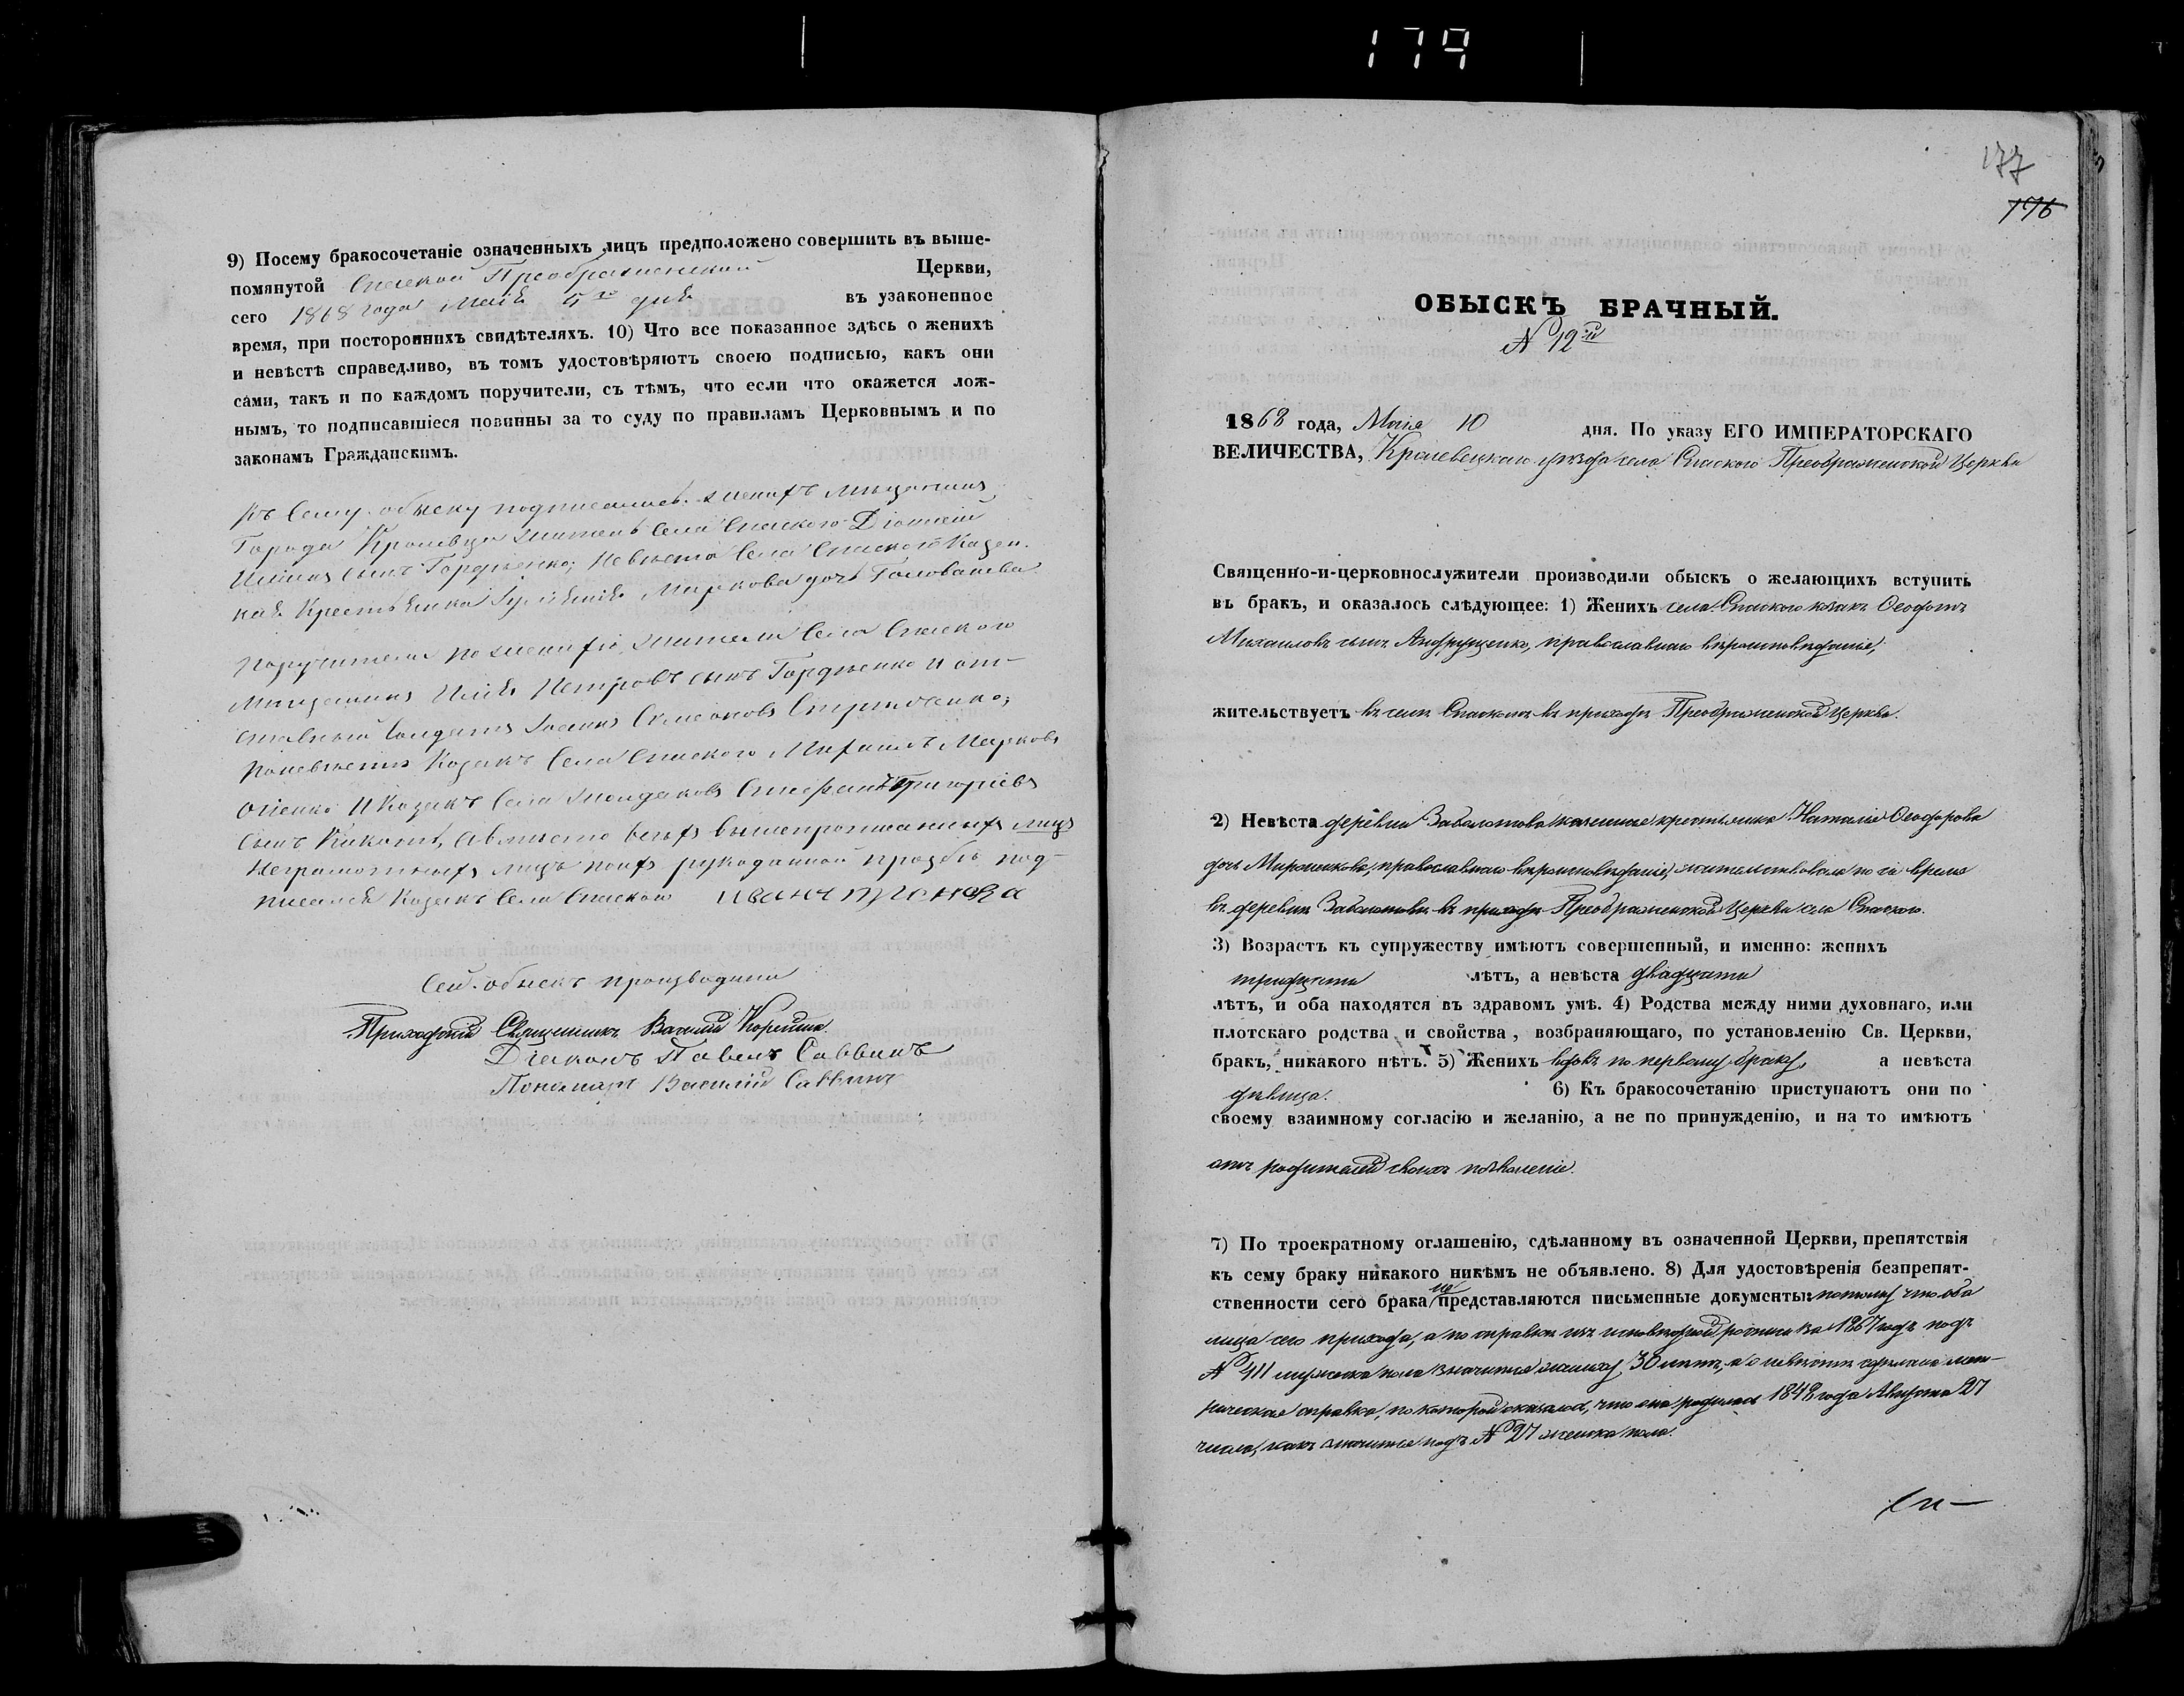 179
9) Посему бракосочетаніе означенныхъ лицъ предположено совершить въ выше-
помянутой Спаской Преображенской Церкви,
сего 1868 года Маія 5го дня въ узаконенное
время, при постороннихъ свидѣтеляхъ. 10) Что все показанное здѣсь о женихѣ
и невѣстѣ справедливо, въ томъ удостовѣряютъ своею подписью, какъ они
сами, такъ и по каждомъ поручители, съ тѣмъ, что если что окажется лож-
нымъ, то подписавшіеся повинны за то суду по правиламъ Церковнымъ и по
законамъ Гражданскимъ.
Къ сему обыску подписались: женихъ мещанинъ
Города Кролевца житель села Спаского
сынъ Гордѣенко; Невѣста села Спаского Казен-
ная Крестьянка Маркова дочь
поручители по женихѣ, жители села Спаского
мещанинъ Илія Петровъ сынъ Гордѣенко и от-
ставный солдатъ Іоаннъ Симеоновъ
по невѣстѣ Козакъ села Спаского Михаилъ Марковъ
и Козакъ села Жолдаковъ Стефанъ Григоріевъ
сынъ Кикоть, а вмѣсто всѣхъ вышепрописанныхъ лицъ
неграмотныхъ лицъ по ихъ рукоданной прозбѣ под-
писался Козакъ села Спаского Иванъ
Сей обыскъ производили
Приходскій Священникъ Василій
Діаконъ Павелъ Саввинъ
Пономарь Василій Саввинъ
177
176
ОБЫСКЪ БРАЧНЫЙ.
№ 12й
1868 года, Маія 10 дня. По указу ЕГО ИМПЕРАТОРСКАГО
ВЕЛИЧЕСТВА, Кролевецкаго уѣзда села Спаского Преображенской Церкви
Священно-и-церковнослужители производили обыскъ о желающихъ вступить
въ бракъ, и оказалось слѣдующее: 1) Женихъ села Спаского козакъ Ѳеофотъ
Михаиловъ сынъ Андрущенко, православнаго вѣроисповѣданія,
жительствуетъ въ селѣ Спаскомъ въ приходѣ Преображенской Церкви.
2) Невѣста деревни Заболотова казенная крестьянка Наталія Ѳеодорова
дочь Мирошникова, православнаго вѣроисповѣданія, жительствовала по сіе время
въ деревнѣ Заболотовѣ въ приходѣ Преображенской Церкви села Спаского.
3) Возрастъ къ супружеству имѣютъ совершенный, и именно: женихъ
тридцати лѣтъ, а невѣста двадцати
лѣтъ, и оба находятся въ здравомъ умѣ. 4) Родства между ними духовнаго, или
плотскаго родства и свойства, возбраняющаго, по установленію Св. Церкви,
бракъ, никакого нѣтъ. 5) Женихъ вдовъ по первому браку, а невѣста
дѣвица. 6) Къ бракосочетанію приступаютъ они по
своему взаимному согласію и желанію, а не по принужденію, и на то имѣютъ
отъ родителей своихъ позволеніе.
7) По троекратному оглашенію, сдѣланному въ означенной Церкви, препятствія
къ сему браку никакого никѣмъ не объявлено. 8) Для удостовѣренія безпрепят-
ственности сего брака не представляются письменные документы: потому что оба
лица сего прихода, а по справкѣ изъ исповѣдной росписи за 1867 годъ подъ
№ 411 мужеска пола значится жениху 30 лѣтъ, а о невѣстѣ сдѣлана мет-
рическая справка, по которой оказалось, что она родилась 1848 года Августа 27
числа, какъ значится подъ № 27 женска пола.